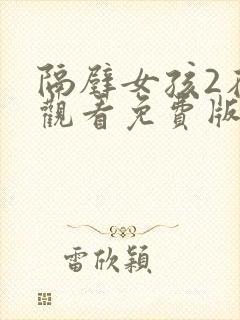 隔壁女孩2在
觀看免費版
雷欣穎